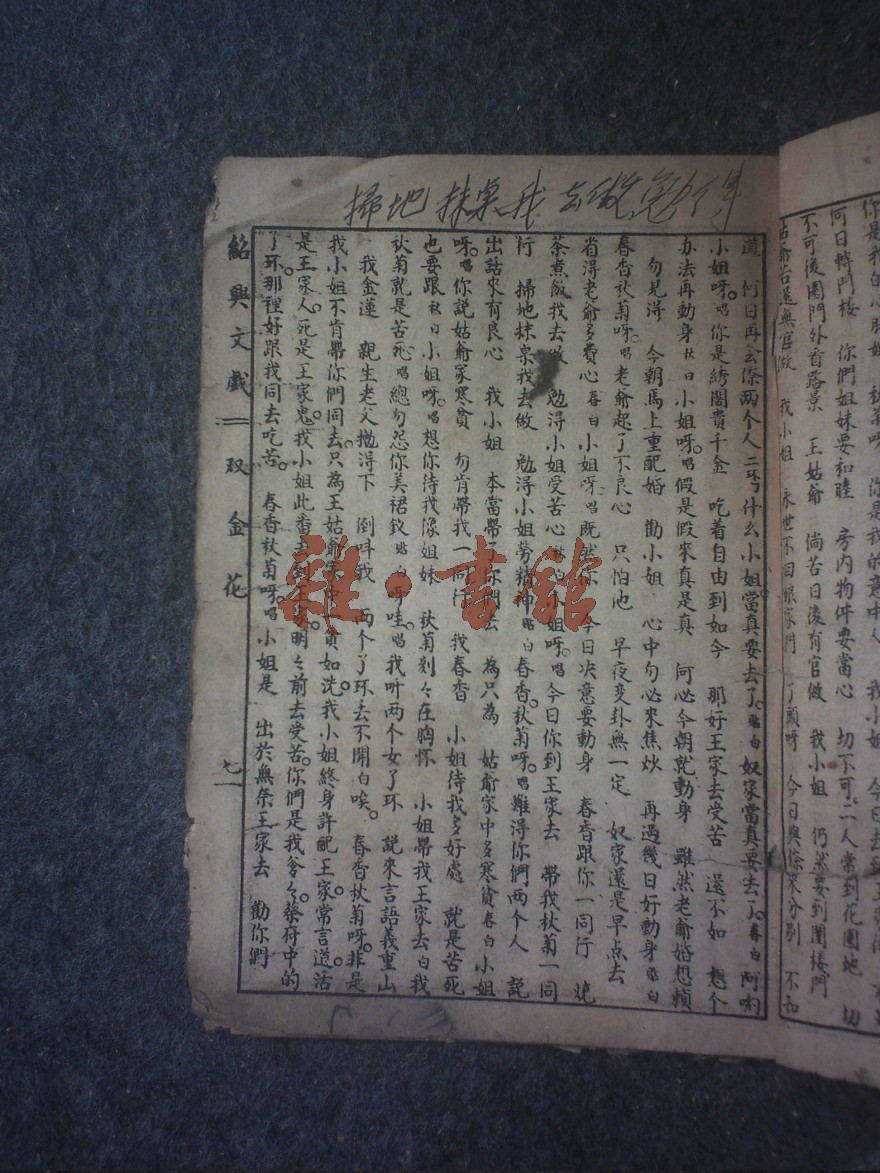 你們姐妹要和睦 房内物件要當心 切不可二人常到花園地 切
不可後園門外看路景 王姑爺 倘若日後有官做 我小姐 仍然要到閨樓門
姑爺若還無官做 我小姐 永世不回娘家門 了頭呀 今日與你來分別 不知
掃地 抹桌我去做 勉得
道 何日再会你两个人 什么小姐當真要去了。白 奴家當真要去了。春白 阿喲
小姐呀。唱你是綉閣貴千金 吃着自由到如今 那好王家去受苦 還不如 想个
办法再動身 秋白小姐呀。唱假是假來真是真 何必今朝就動身 雖然老爺婚怨賴
勿見得 今朝馬上重配婚 勸小姐 心中勿必來焦炒 再過幾日好動身 白
春香秋菊呀。唱老爺起了不良心 只怕他 早夜变卦無一定 奴家還是早点去
省得老爺多費心 春白小姐呀。唱既然你 今日决意要動身 春香跟你一同行 燒
茶煮飯我去做 勉得小姐受苦心 秋白小姐呀。唱今日你到王家去 帶我秋菊一同
行 掃地抹桌我去做 勉得小姐勞精神 白春香。秋菊呀。唱難得你們两个人 説
出話來有良心 我小姐 本當帶了你們去 為只為 姑爺家中多寒貧 春白小姐
呀。唱你説姑爺家寒貧 勿肯帶我一同行 我春香 小姐待我多好處 就是苦死
也要跟 秋白小姐呀。唱想你待我像姐妹 秋菊刻々在胸怀 小姐帶我王家去 白我
秋菊就是苦死 唱總勿忍你美裙釵 白呀哇。唱我听两个女了环 説來言語義重山
我金蓮 親生老父抛得下 倒叫我 两个了环丢不開 白唉。春香秋菊呀。非是
我小姐不肯帶你們同去。只為王姑爺家中一貧如洗。我小姐終身許配王家。常言道。活
是王家人。死是王家鬼。我小姐此番去到王家。明々前去受苦。你們是我爹々。蔡府中的
了环。那裡好跟我同去吃苦。 春香秋菊呀。唱小姐是 出於無奈王家去 勸你們
紹興文戲 双金花
七一
雜·書館